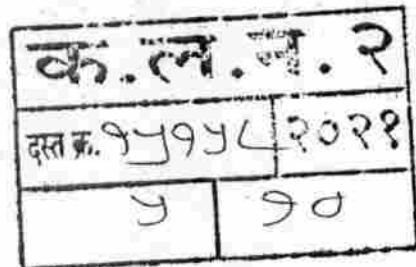 क.ल.न.२
दस्त क्र. १५१५८ २०२१
५ १०